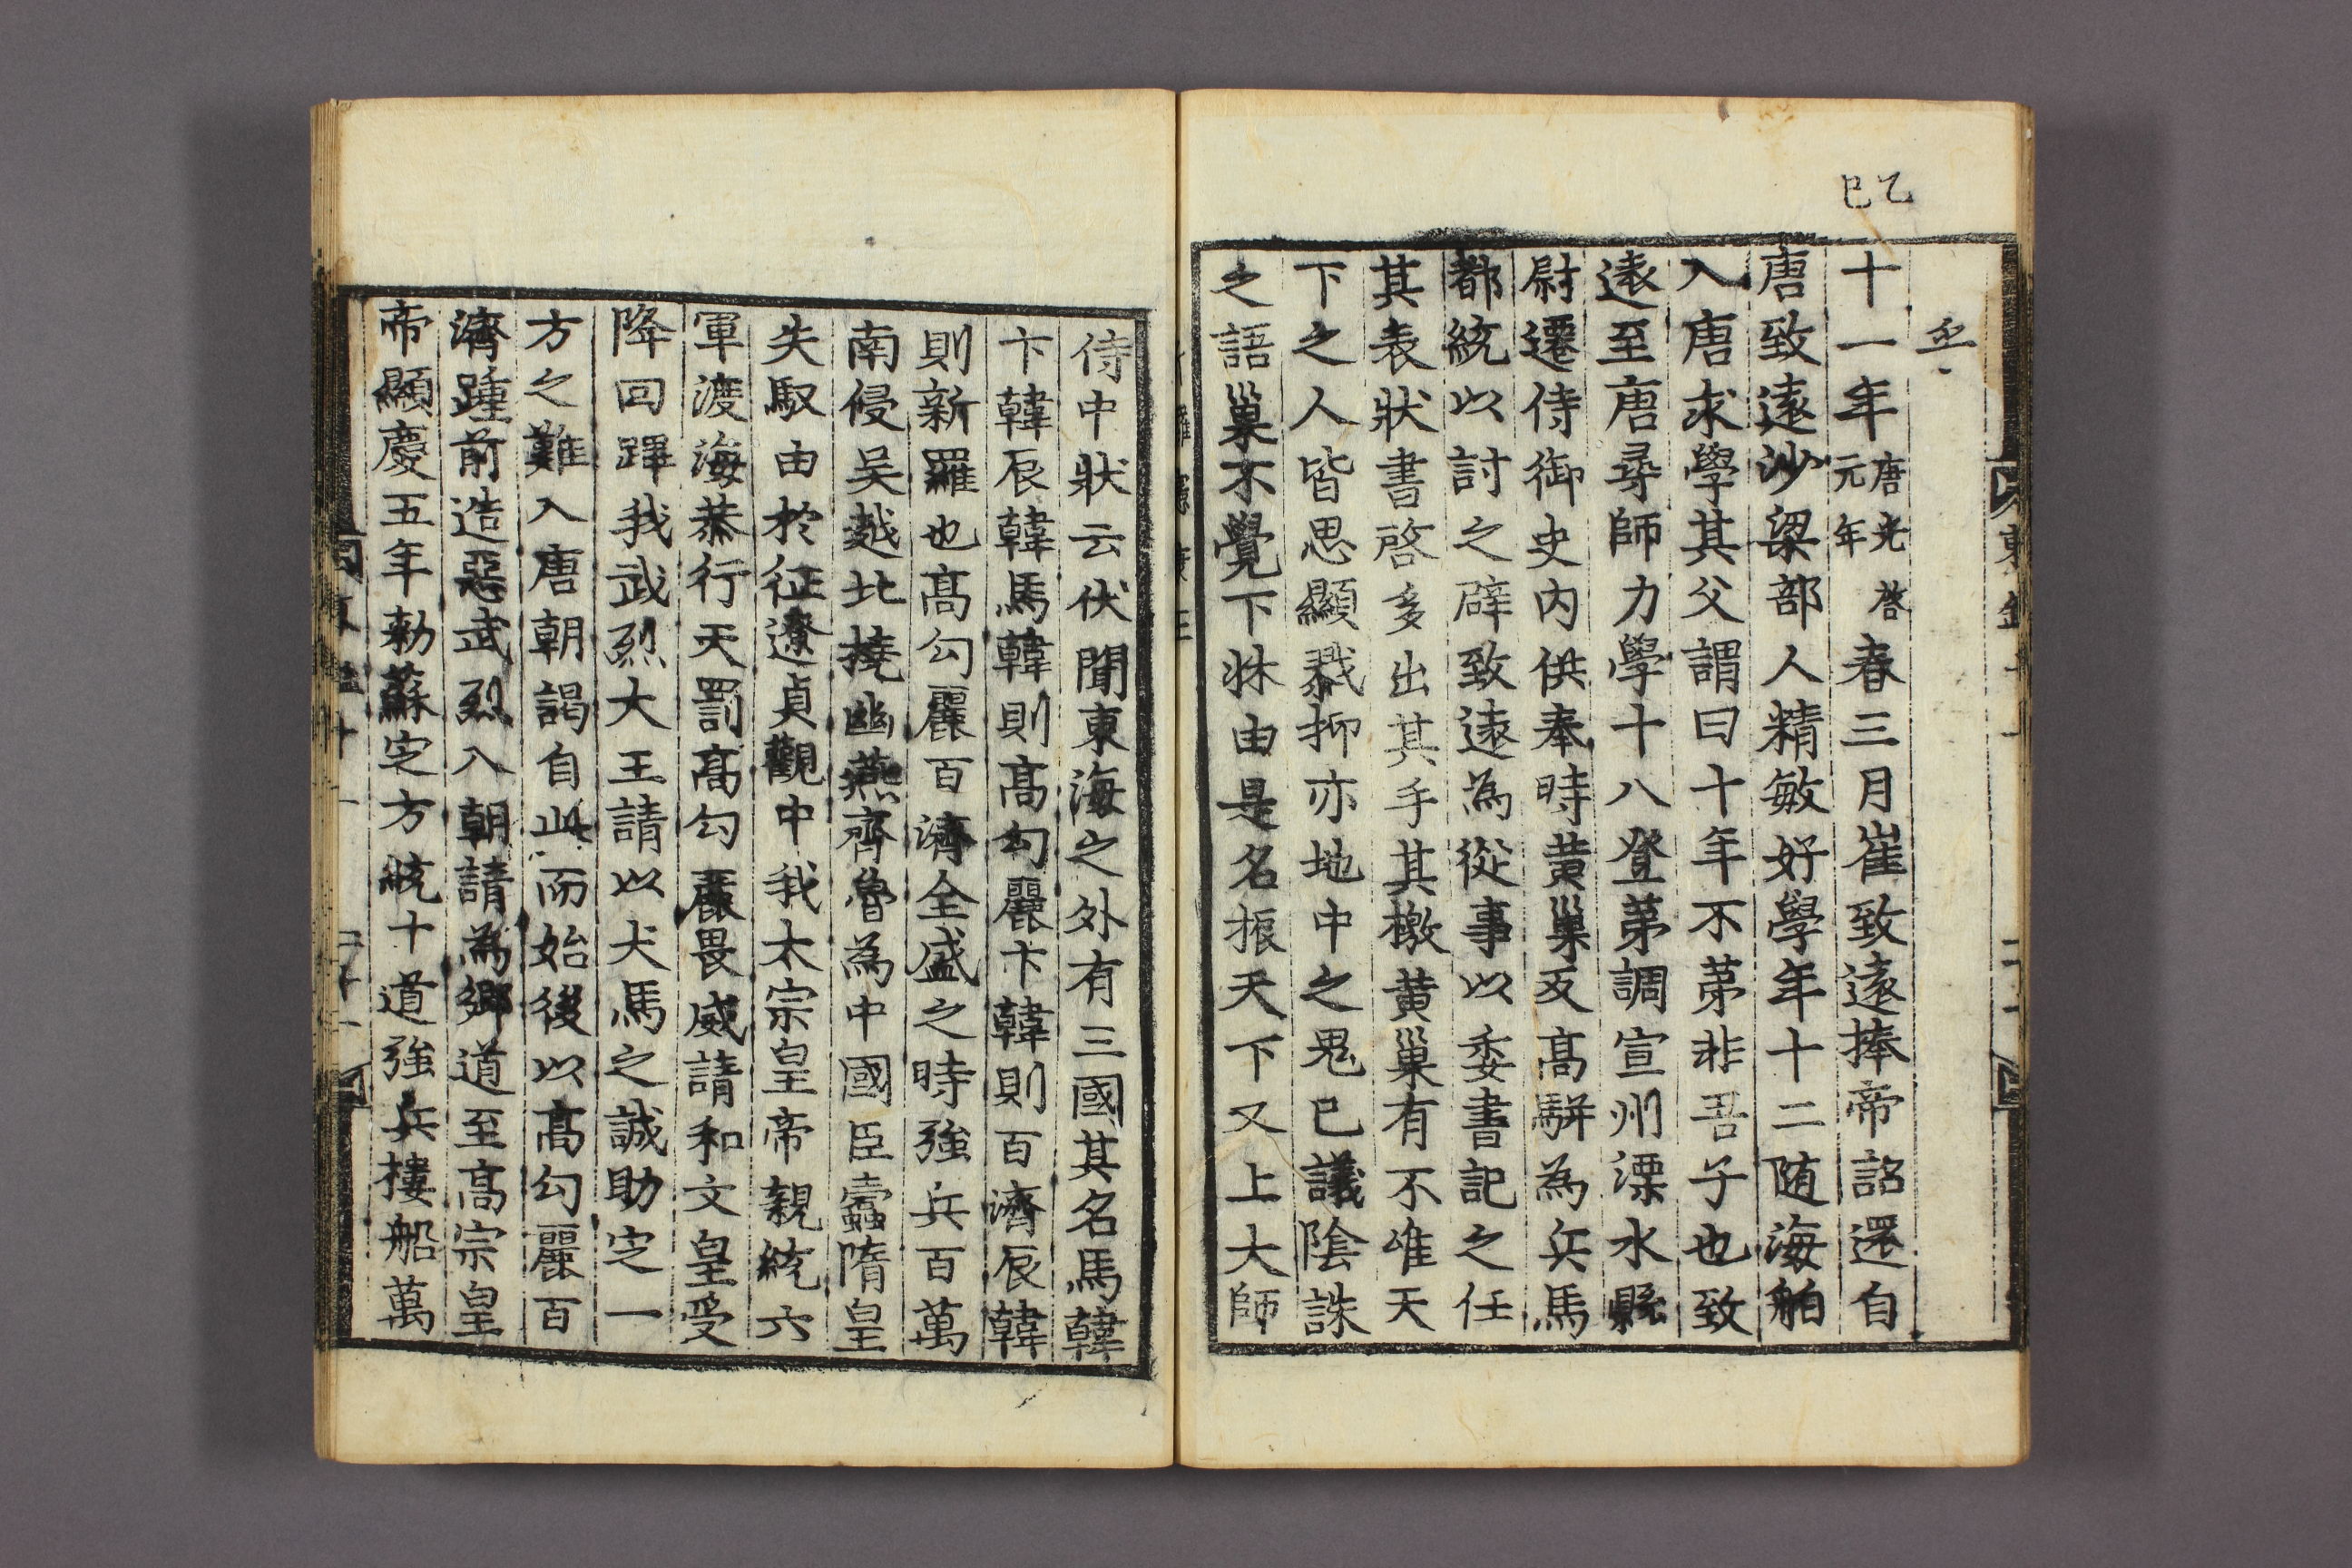 乙巳
十一年唐光啓元年春三月崔致遠捧帝詔還自
唐致遠沙梁部人精敏好學年十二随海舶
入唐求學其父謂曰十年不苐非吾子也致
遠至唐尋師力學十八登苐調宣州溧水縣
尉遷侍御史内供奉時黄巢反高騈為兵馬
都統以討之辟致遠為從事以委書記之任
其表狀書啓多出其手其檄黄巢有不唯天
下之人皆思顯戮抑亦地中之鬼已議陰誅
之語巢不覺下牀由是名振天下又上大師
侍中狀云伏聞東海之外有三國其名馬韓
卞韓辰韓馬韓則高勾麗卞韓則百濟辰韓
則新羅也高勾麗百濟全盛之時強兵百萬
南侵吳越北撓幽燕齊魯為中國臣蠹隋皇
失馭由於征遼貞觀中我太宗皇帝親統六
軍渡海恭行天罰高勾麗畏威請和文皇受
降回蹕我武烈大王請以犬馬之誠助定一
方之難入唐朝謁自此而始後以高勾麗百
濟踵前造惡武烈入朝請為鄉道至高宗皇
帝顯慶五年勅蘇定方統十道強兵樓船萬